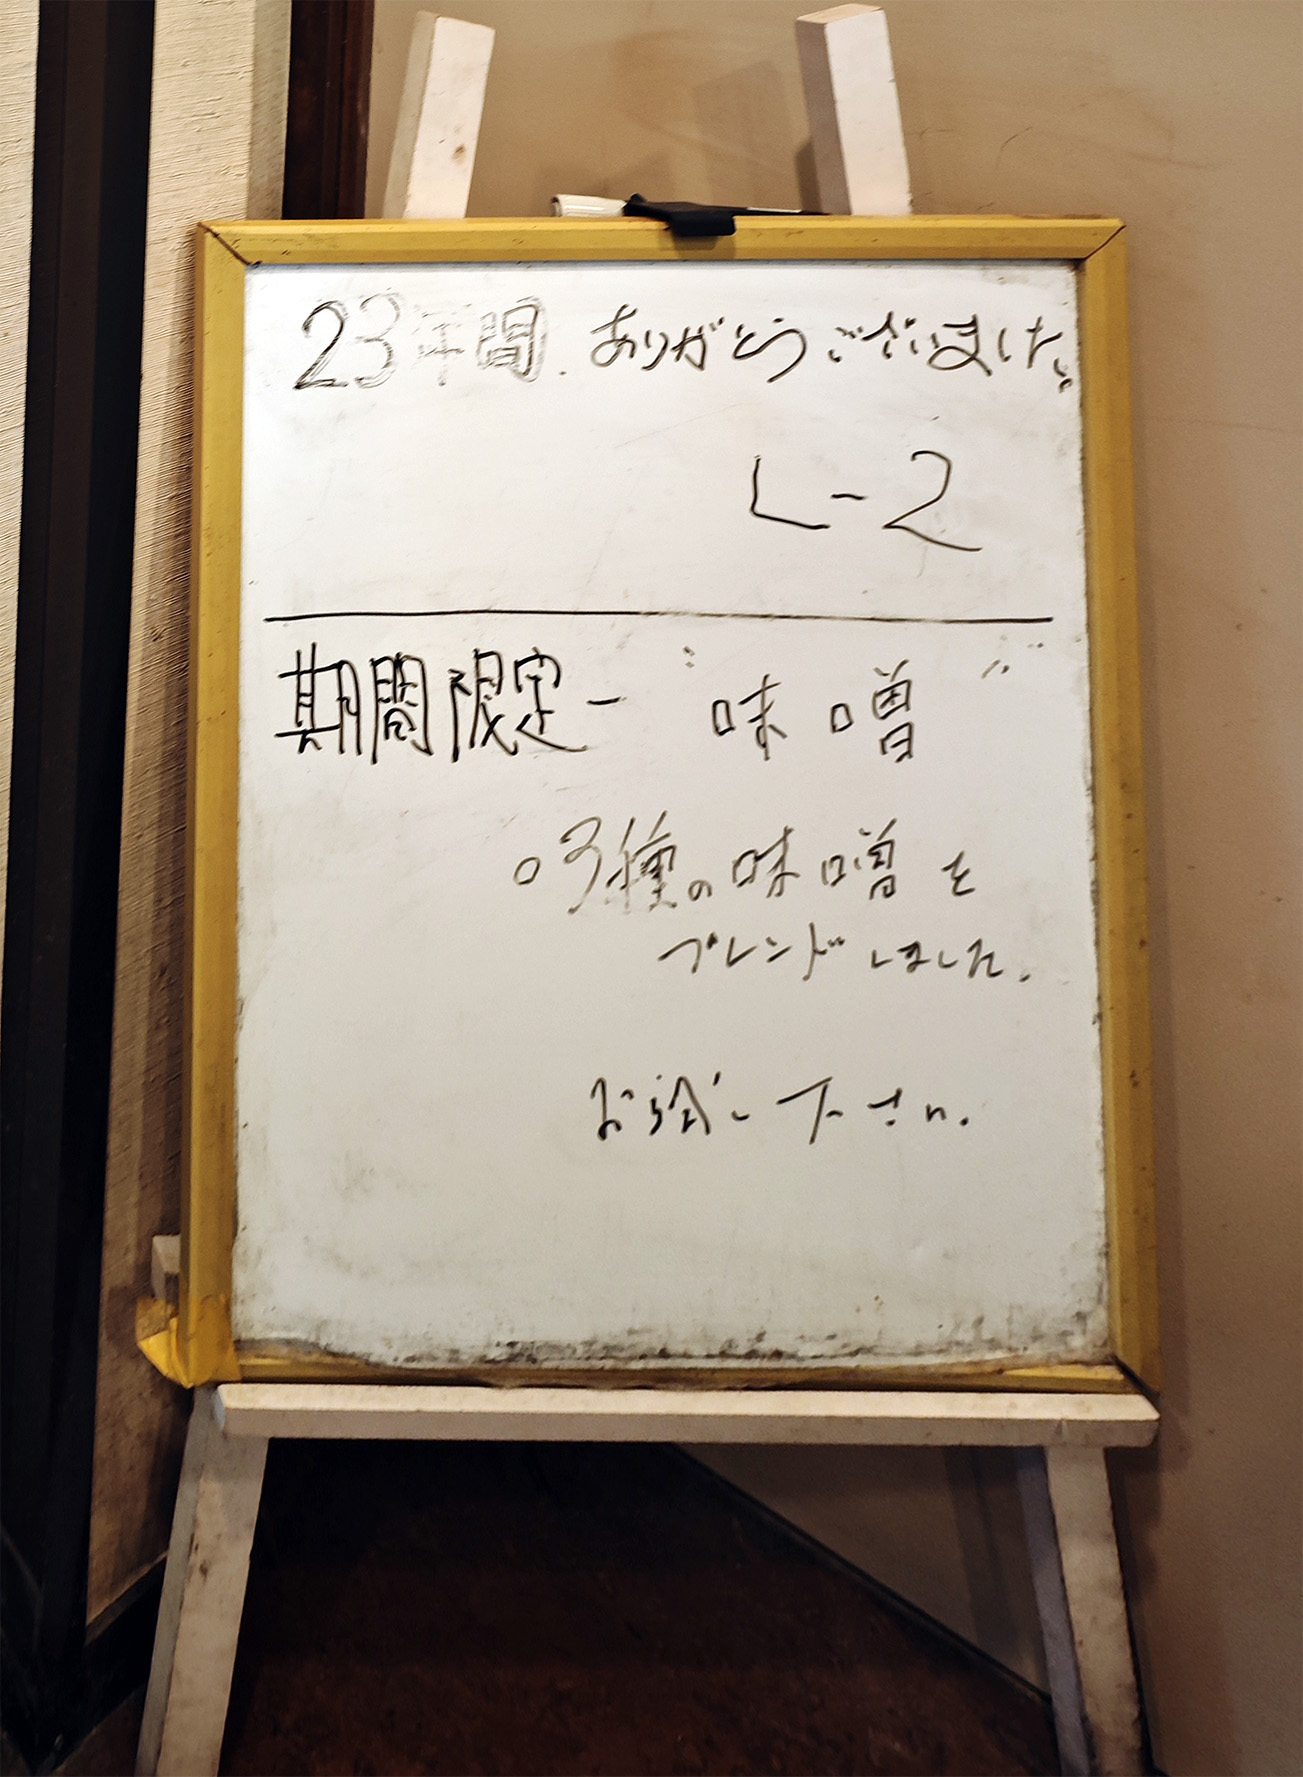 23年間.ありがとうございました。
L-2
期間限定ー“味噌”
○3種の味噌を
ブレンドしました.
お試し下さい.